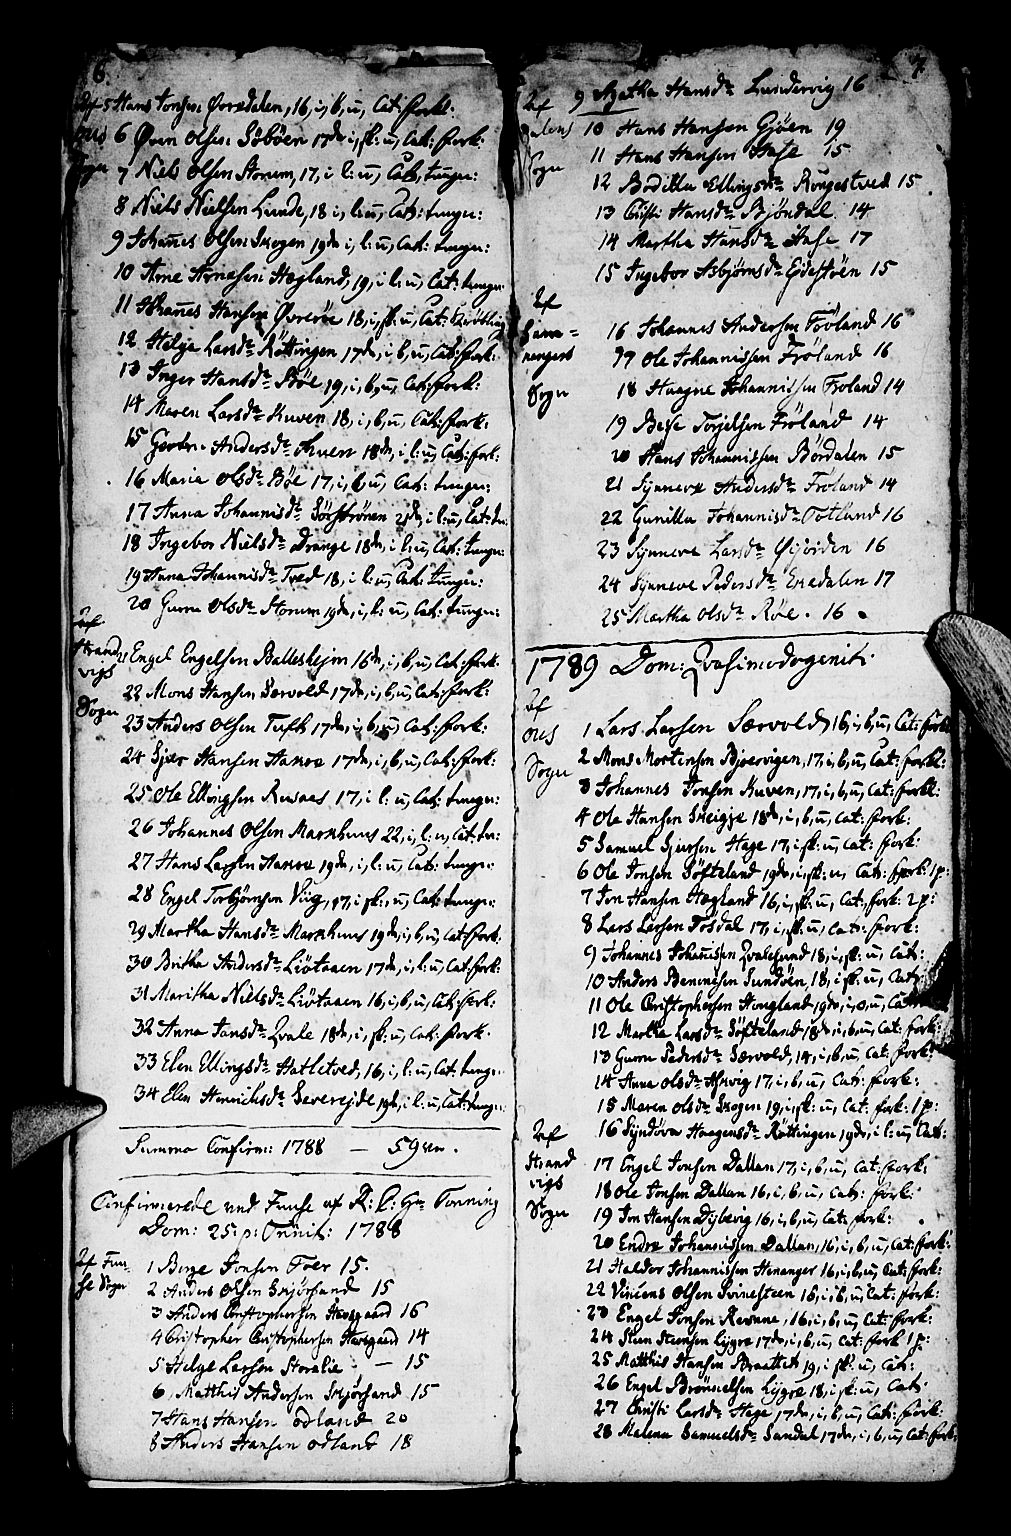 6.
Af 5 Hans Jonsen Øvredalen, 16, i, b, u, Cat: fork:
Ous 6 Øven Olsen Söböen 17de i, sk: u, Cat: fork:
Sogn 7 Niels Olsen Storum, 17, i l: u, Cat: tungn:
8 Niels Nielsen Lunde, 18 i, l: u, Cat: tungn:
9 Johannes Olsen Skogen 19de i, l: u, Cat: tungn:
10 Arne Arnesen Hægland, 19, i l: u, Cat: tungn:
11 Johannes Hansen Øvreröe 18, i, sk: u, Cat:
12 Helga Larsdr Röttingen 17de, i, b, u, Cat: fork:
13 Inger Hansdr Böe 19, i, b, u, Cat: fork:
14 Maren Larsdr Kuven 18, i, b, u, Cat: fork:
15 Andersdr Kuven 18de, i l: u, Cat: fork:
16 Maria Olsdr Böe 17, i, b, u, Cat: tungn:
17 Anna Johannisdr Sörströnen 21de, i l: u, Cat: tu:
18 Ingebor Nielsdr Drange 18de, i l: u, Cat: tungn:
19 Anna Johannisdr Tved 18, i l: u, Cat: tungn:
20 Guru Olsdr Storum 19de, i, l: u, Cat: tungn:
Af
Strand
vigs
Sogn
21 Engel Engelsen Ballesheim 16de, i, b, u, Cat: fork:
22 Mons Hansen Særvold 17de, i, b, u, Cat: fork:
23 Anders Olsen Tufft 17de, i, b, u, Cat: fork:
24 Siver Hansen Haaroe 17de, i, b, u, Cat: fork:
25 Ole Ellingsen Rusaas 17, i l: u, Cat: tungn:
26 Johannes Olsen Markhuus 22, i, l: u, Cat: tu:
27 Hans Larsen Haaroe 19de, i, l: u, Cat: tungn:
28 Engel Torbjörnsen Viig, 17, i sk:, u, Cat: tungn:
29 Martha Hansdr Markhuus 19de, i, b, u, Cat: fork:
30 Britha Andersdr Liötaaen 17de, i, l: u, Cat: fork:
31 Maritha Nielsdr Liötaaen 16, i, b, u, Cat: fork:
32 Anna Jansdr Qvale 18de, i, sk: u, Cat: fork:
33 Elen Ellingsdr Hatletved, 16, i, l: u, Cat: tungn:
34 Elen Henrichsdr Severejde 19de, i l: u, Cat: tungn:
Summa Confirm: 1788 — 59ve.
Confirmerede ved Fuuse af R: C: Hr Tonning
Dom: 25: p: Trinit: 1788
Af Fuu-
se Sogn
1 Berge Jonsen Toer 15.
2 Anders Olsen Skjörsand 15
3 Anders Christophersen Havsgaard 16
4 Christopher Christophersen Havsgaard 14
5 Helge Larsen Storalie — 15
6, Matthis Andersen Skjörsand 15
7 Hans Hansen Odland 20
8 Anders Hansen Odland 18
7.
Af
Sogn
9 Agatha Hansdr Lundervig 16
10 Hans Hansen Gjöen 19
11 Hans Hansen Hase 15
12 Bodilla Ellingsdr Rougestved 15
13 Christi Hansdr Bjöndal 14
14 Martha Hansdr Hase 17
15 Ingebor Asbjörnsdr Ejdestöen 15
Af
Same-
nangers
Sogn
16 Johannes Andersen Fröland 16
17 Ole Johannissen Fröland 16
18 Haagne Johannissen Froland 14
19 Berse Torjelsen Fröland 14
20 Hans Johannissen Bördalen 15
21 Synneve Andersdr Fröland 14
22 Gunilla Johannisdr Totland 16
23 Synneve Larsdr Øijorden 16
24 Synneve Pedersdr Enedalen 17
25 Martha Olsdr Röe. 16.
1789 Dom: Qvasimodogeniti.
Af
Ous
Sogn
1 Lars Larsen Særvold, 16, i, b, u, Cat: fork:
2 Mons Mortensen Bjoervigen, 17, i, b, u, Cat: forkl:
3 Johannes Jonsen Kuven, 17, i, b, u, Cat: forkl:
4 Ole Hansen Skeigje 18de, i, b, u, Cat: fork:
5 Samuel Sjursen Hage 17, i sk: u, Cat: fork:
6 Ole Jonsen Söfteland 19de, i, sk: u, Cat: fork: 1 p:
7 Jon Hansen Hægland 16, i, sk: u, Cat: fork: 2 p:
8 Lars Larsen Tosdal 17, i, sk: u, Cat: fork:
9 Johannes Johannesen Qvalesund 18, i, sk: u, Cat:
10 Anders Bennisen Sundöen, 18, i sk: u, Cat:
11 Ole Christophersen Hougland 19de, i, b, u, Cat:
12 Martha Larsdr Söfteland 18de, i, b, u, Cat: fork:
13 Guru Pedersdr Særvold, 14, i, b, u, Cat: fork:
14 Anna Olsdr Askvig 17, i, b, u, Cat: fork:
15 Maren Olsdr Skogen 19, i, sk: u, Cat: fork: 1 p:
16 Syndöva Haagensdr Röttingen 19de, i l: u, Cat:
Af
Strand
vigs
Sogn
17 Engel Jonsen Dallan 17, i, b, u, Cat: fork:
18 Ole Jonsen Dallan 16, i, b, u, Cat: fork:
19 Jon Hansen Dybevig 16, i, b, u, Cat: fork:
20 Endre Johannissen Dallan, 16, i, b, u, Cat: fork:
21 Haldor Johannissen Henanger 16, i, b, u, Cat: fork:
22 Vincens Olsen Svinesteen 16, i, b, u, Cat: fork:
23 Engel Jonsen Revene, 16, i, b, u, Cat: fork:
24 Steen Steensen Lygre 17de, i, b, u, Cat: fork 1 p:
25 Matthis Hansen Braattet 19, i sk: u, Cat:
26 Engel Brönnelsen Lygre 18, i, sk: u, Cat:
27 Christi Larsdr Hage 17de, i, b, u, Cat: fork:
28 Malena Samuelsdr Sandal 17de, i, b, u, Cat: fork: